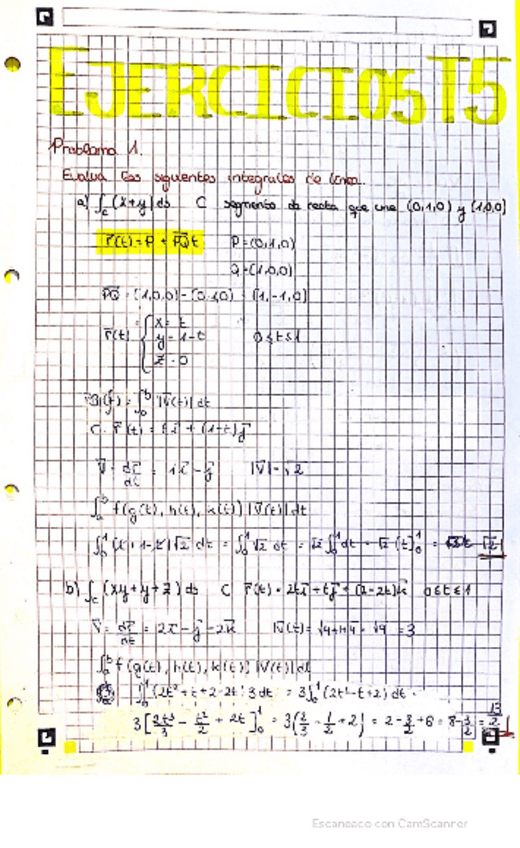 EJERCICIOS T5
Problema 1.
Evalua las siguientes integrales de línea.
a) ∫c (x+y) ds C segmento de recta que une (0,1,0) y (1,0,0)
r(t) = P + PQ t P = (0,1,0)
Q = (1,0,0)
PQ = (1,0,0) - (0,1,0) = (1,-1,0)
r(t) = { x = t
y = 1-t 0 ≤ t ≤ 1
z = 0
= ∫ |V(t)| dt
C: r(t) = t i + (1-t) j
V = dr/dt = 1i - j |V| = √2
∫ₐᵇ f(g(t), h(t), k(t)) |V(t)| dt
∫₀¹ (t + 1 - t) √2 dt = ∫₀¹ √2 dt = √2 ∫₀¹ dt = √2 (t)₀¹ = √2
b) ∫c (xy+y+z) ds C r(t) = 2t i + t j + (2-2t) k 0 ≤ t ≤ 1
V = dr/dt = 2i - j - 2k |V(t)| = √4+1+4 = √9 = 3
∫ₐᵇ f(g(t), h(t), k(t)) |V(t)| dt
∫₀¹ (2t² + t + 2 - 2t) 3 dt = 3 ∫₀¹ (2t² - t + 2) dt =
3 [2t³/3 - t²/2 + 2t]₀¹ = 3 (2/3 - 1/2 + 2) = 2 - 3/2 + 6 = 8 - 3/2 = 13/2
Escaneado con CamScanner